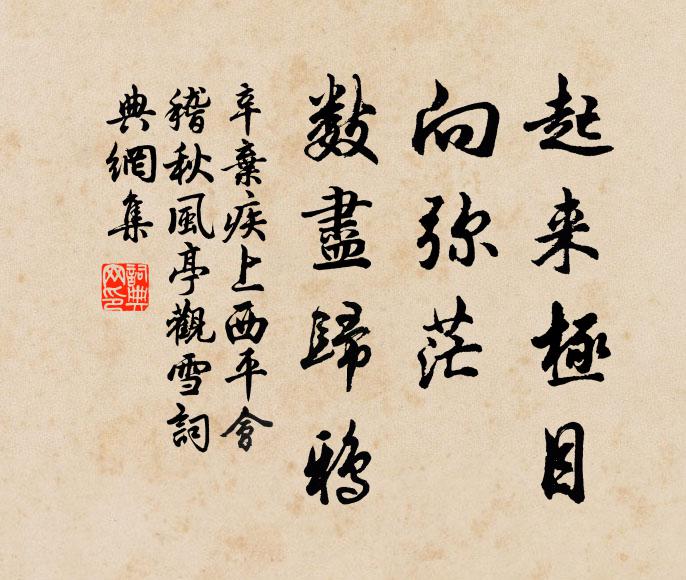 起来極目
向弥茫
數盡歸鴉
辛棄疾上西平會
稽秋風亭觀雪詞
典網集
詞典網印